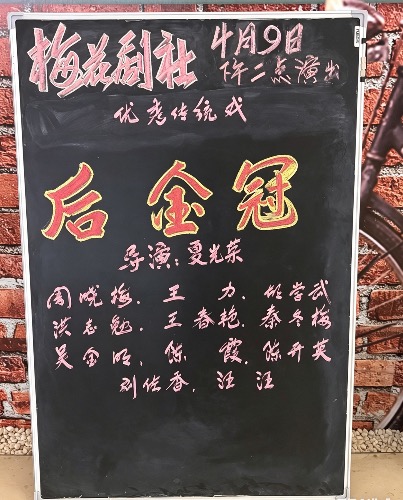 梅花剧社 4月9日
下午二点演出
优秀传统戏
后金冠
导演:夏光荣
周晓梅、王 力、胡学武
洪志勉、王春艳、秦冬梅
吴金明、陈 霞、陈开英
刘佐香、汪 汪